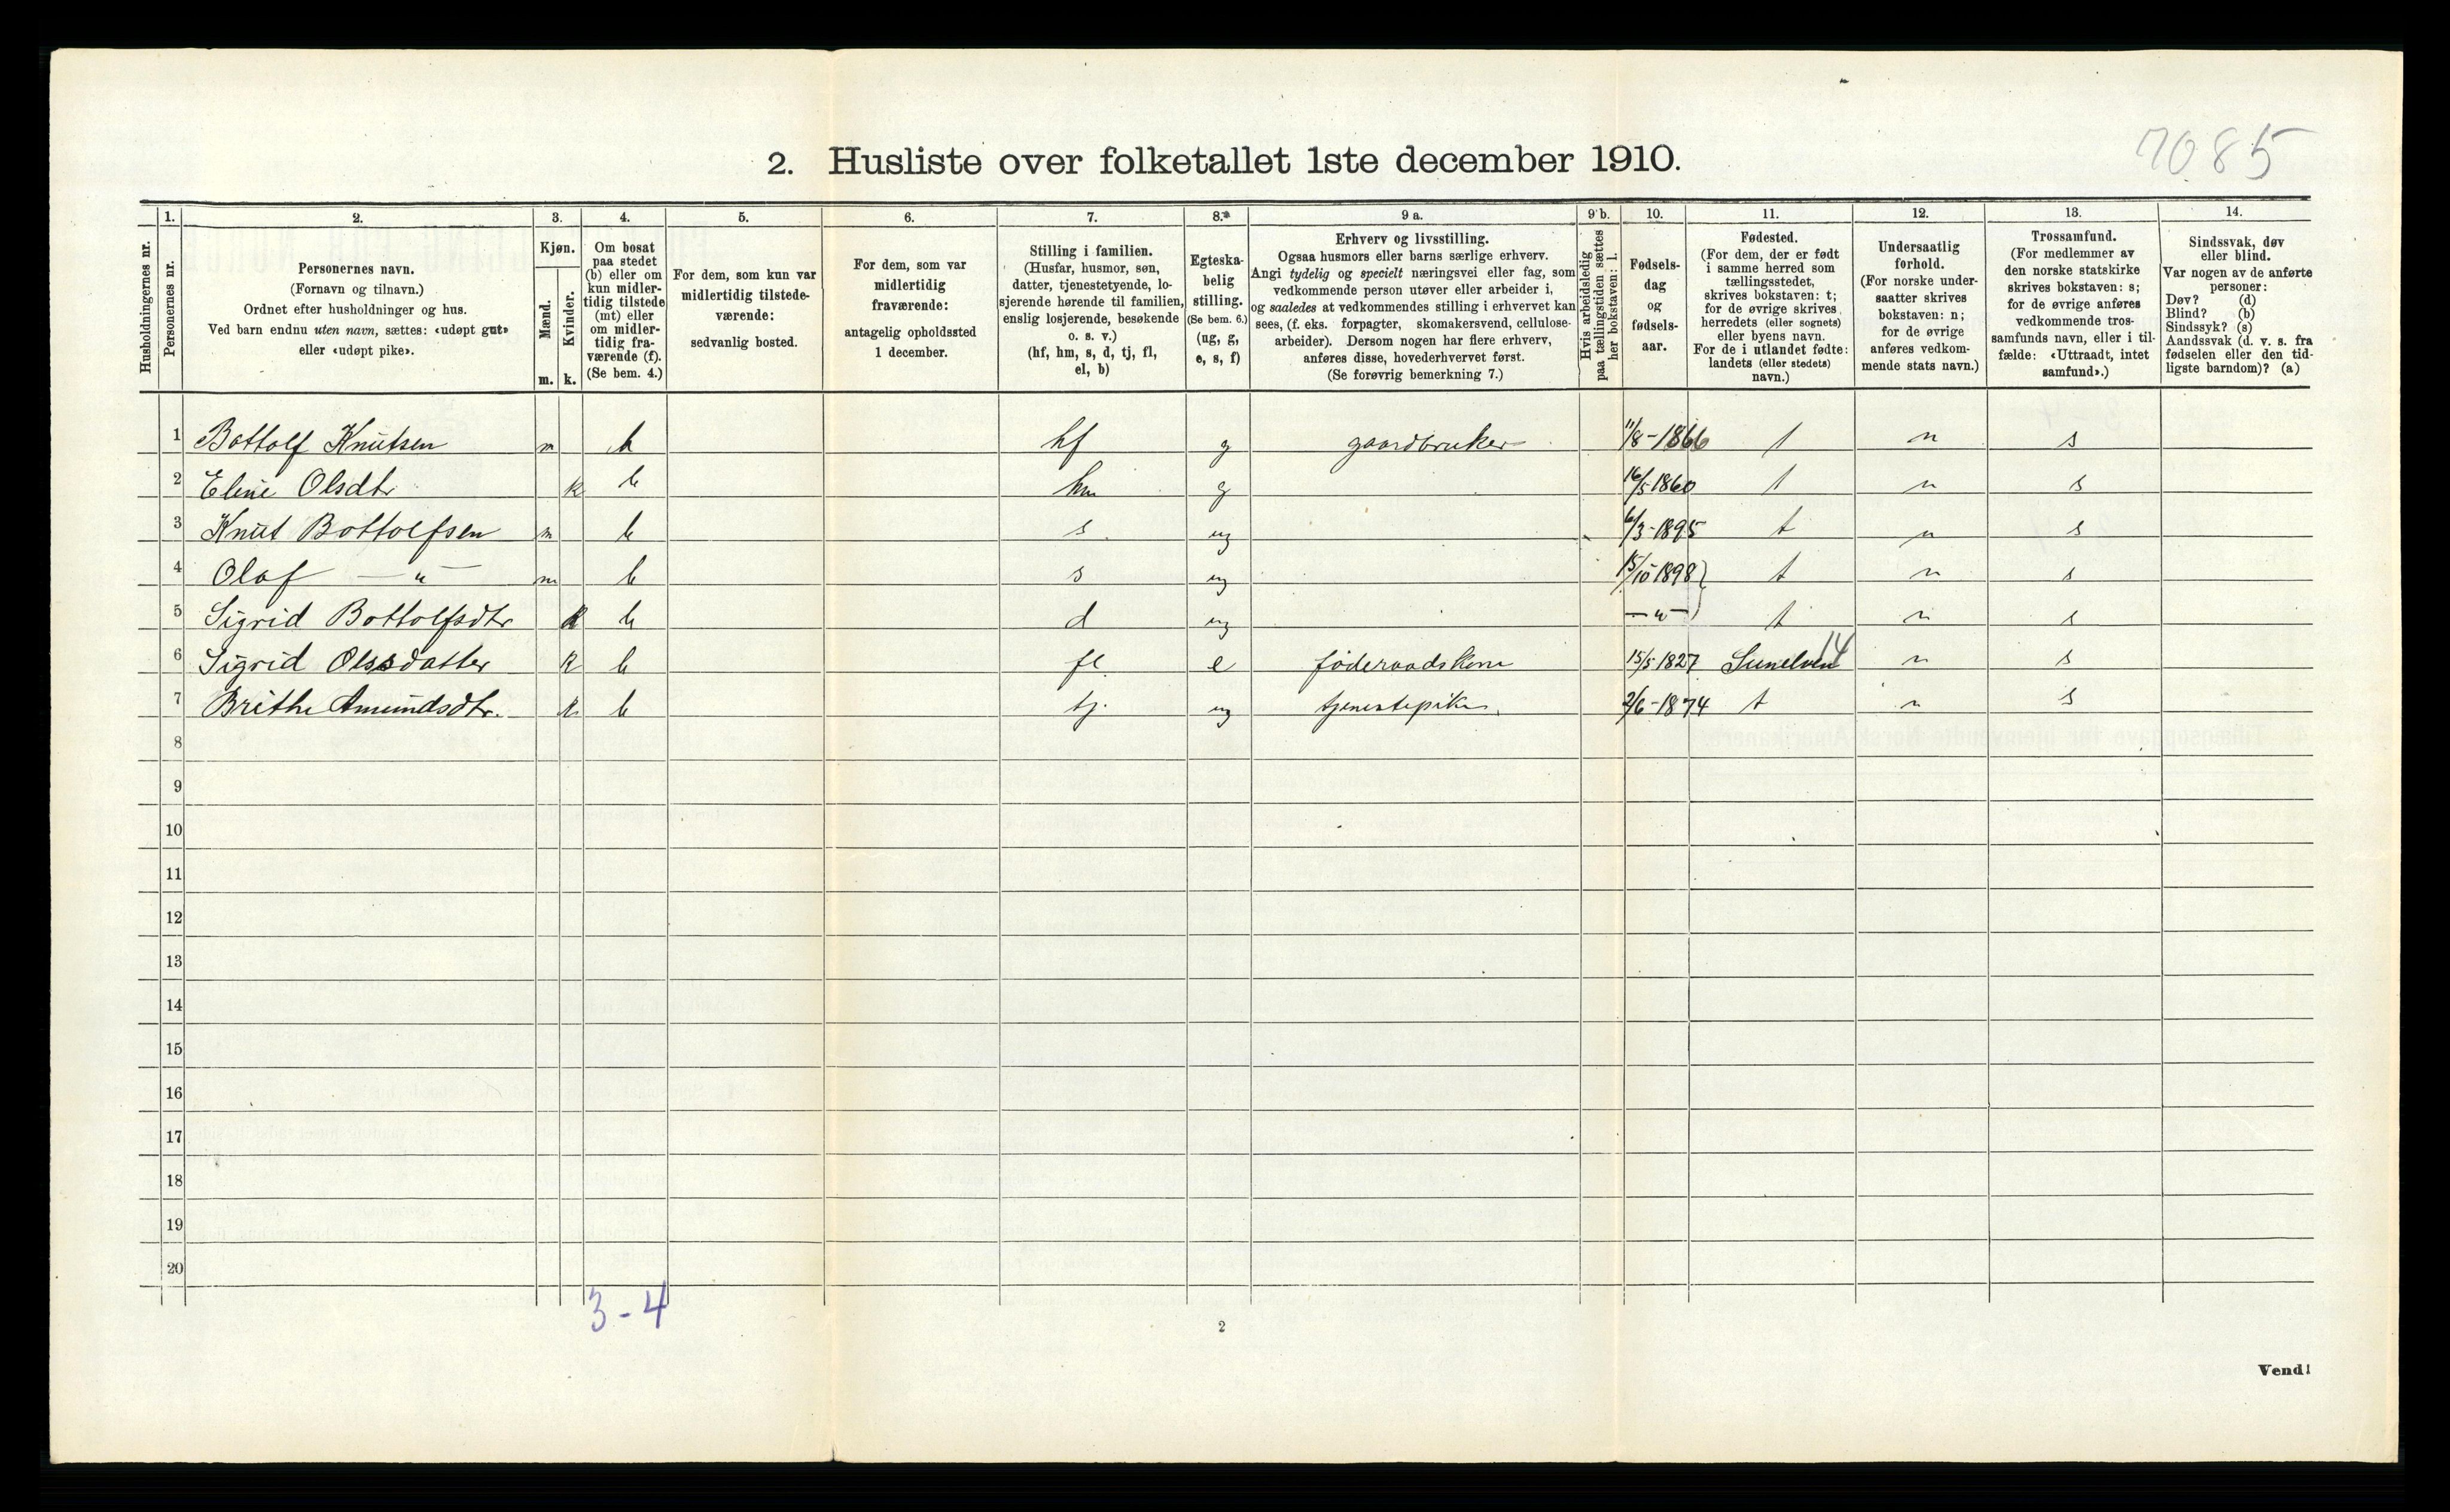 7085
2. Husliste over folketallet 1ste december 1910.
Husholdningernes nr.
1. Personernes nr.
2. Personernes navn. (Fornavn og tilnavn.) Ordnet efter husholdninger og hus. Ved barn endnu uten navn, sættes: «udøpt gut» eller «udøpt pike».
3. Kjøn. Mænd. m. Kvinder. k.
4. Om bosat paa stedet (b) eller om kun midlertidig tilstede (mt) eller om midlertidig fraværende (f). (Se bem. 4.)
5. For dem, som kun var midlertidig tilstedeværende: sedvanlig bosted.
6. For dem, som var midlertidig fraværende: antagelig opholdssted 1 december.
7. Stilling i familien. (Husfar, husmor, søn, datter, tjenestetyende, losjerende hørende til familien, enslig losjerende, besøkende o. s. v.) (hf, hm, s, d, tj, fl, el, b)
8. Egteskabelig stilling. (Se bem. 6.) (ug, g, e, s, f)
9 a. Erhverv og livsstilling. Ogsaa husmors eller barns særlige erhverv. Angi tydelig og specielt næringsvei eller fag, som vedkommende person utøver eller arbeider i, og saaledes at vedkommendes stilling i erhvervet kan sees, (f. eks. forpagter, skomakersvend, cellulosearbeider). Dersom nogen har flere erhverv, anføres disse, hovederhvervet først. (Se forøvrig bemerkning 7.)
9 b. Hvis arbeidsledig paa tællingstiden sættes her bokstaven: l.
10. Fødselsdag og fødselsaar.
11. Fødested. (For dem, der er født i samme herred som tællingsstedet, skrives bokstaven: t; for de øvrige skrives herredets (eller sognets) eller byens navn. For de i utlandet fødte: landets (eller stedets) navn.)
12. Undersaatlig forhold. (For norske undersaatter skrives bokstaven: n; for de øvrige anføres vedkommende stats navn.)
13. Trossamfund. (For medlemmer av den norske statskirke skrives bokstaven: s; for de øvrige anføres vedkommende trossamfunds navn, eller i tilfælde: «Uttraadt, intet samfund».)
14. Sindssvak, døv eller blind. Var nogen av de anførte personer: Døv? (d) Blind? (b) Sindssyk? (s) Aandssvak (d. v. s. fra fødselen eller den tidligste barndom)? (a)
1 Bottolf Knutsen m b hf g gaardbruker 11/8-1866 t n s
2 Eline Olsdtr k b hm g 16/5 1860 t n s
3 Knut Bottolfsen m b s ug 6/3-1895 t n s
4 Olaf — " — m b s ug 15/10 1898 } t n s
5 Sigrid Bottolfsdtr k b d ug — " — t n s
6 Sigrid Olssdatter k b fl e føderaadskone 15/5 1827 Sunelven 14 n s
7 Brithe Amundsdtr. k b tj. ug tjenestepike 2/6-1874 t n s
8
9
10
11
12
13
14
15
16
17
18
19
20
3-4
2
Vend!